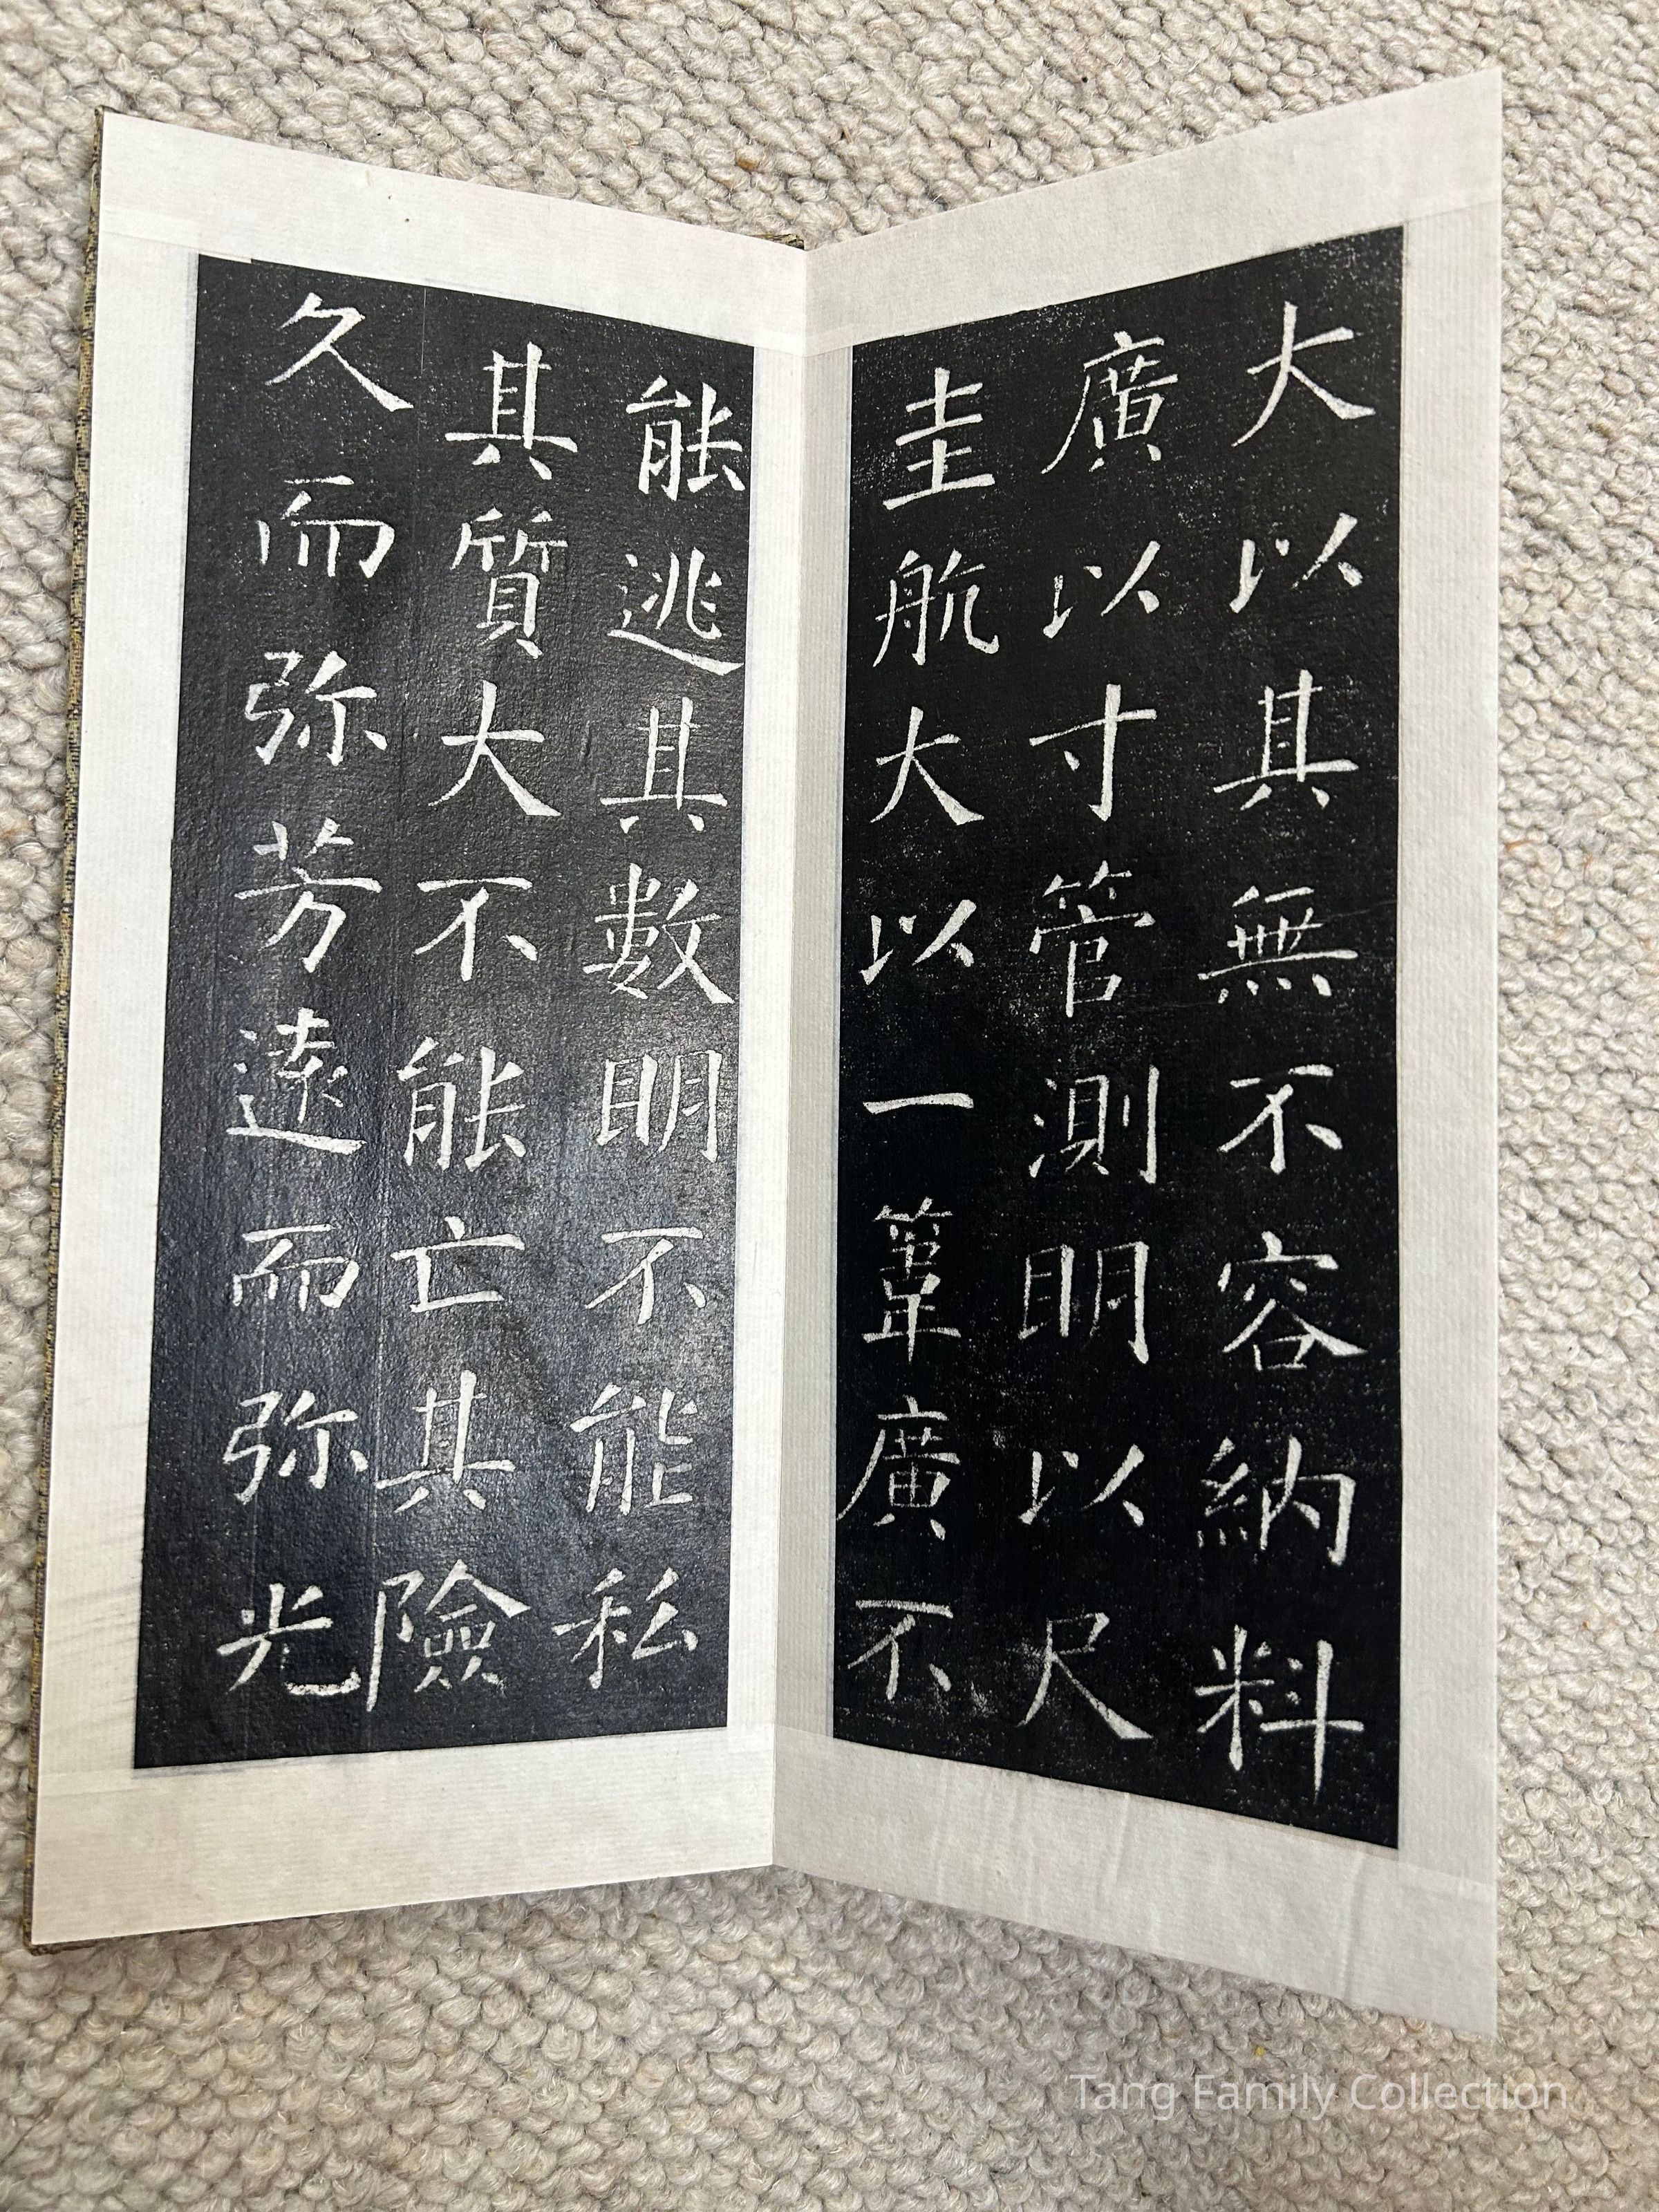 大以其無不容納料
廣以寸管測明以尺
圭航大以一葦廣不
能逃其數明不能私
其質大不能亡其險
久而弥芳遠而弥光
Tang Family Collection